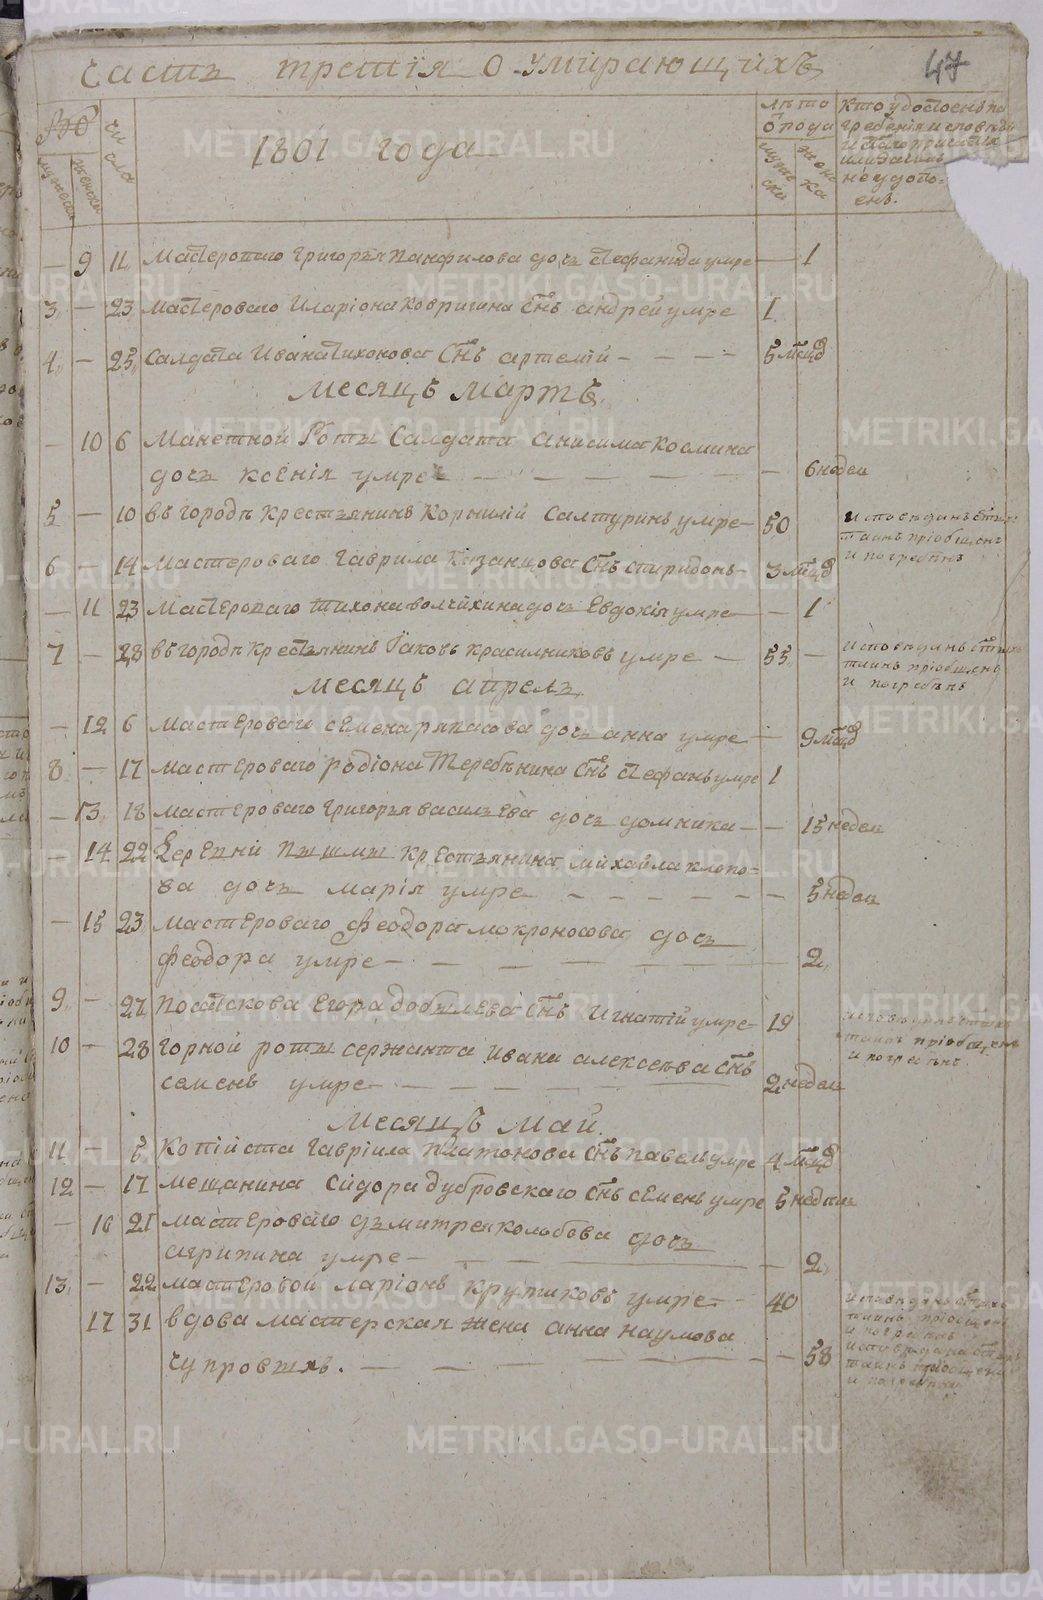 часть третія о умирающихъ 47
числа
1801 года
лѣто
мужеска
женска
мужески
женска
кто удостоенъ по
гребенія исповѣди
не удосто-
енъ.
— 9 11 Мастероваго Григорья Панфилова дочь стефанида умре — 1
3 — 23 мастероваго Иларіона Ковригина снъ андрей умре 1
4 — 25 салдата Ивана Тихонова снъ артемій — — — — 5 мцд
месяцъ мартъ.
— 10 6 Манетной Роты Салдата анисима Космина
дочь ксенія умре — — — — — — 6 недел
5 — 10 въ городѣ крестьянинъ Корнилій Салтуринъ умре — 50 исповѣданъ стыхъ
таинъ пріобщенъ
и погребенъ
6 — 14 Мастероваго Гаврила Казанцова снъ спиридонъ — 3 мцд
— 11 23 Мастероваго тихона волчихина дочь Евдокія умре — — 1
7 — 28 въ городѣ крестьянинъ Іаковъ красилниковъ умре — 55 — исповѣданъ стыхъ
таинъ пріобщенъ
и погребенъ
месяцъ апрель
— 12 6 мастероваго семена рякасова дочь анна умре — 9 мцд
8 — 17 мастероваго родіона Теребѣнина снъ стефанъ умре 1
— 13 18 мастероваго григорья васильева дочь домника — — 15 недел
— 14 22 Деревни пышмы крестьянина михайла клопо-
ва дочь марія умре — — — — — — — 5 недел
— 15 23 мастероваго феодора мокроносова дочь
феодора умре — — — — — 2
9 — 27 посатскова Егора добылева снъ игнатій умре — 19 исповѣданъ стыхъ
таинъ пріобщенъ
и погребенъ
10 — 28 горной роты сержанта ивана алексеева снъ
семенъ умре — — — — — 2 недел
месяцъ май.
11 — 5 копійста гавріила платонова снъ павелъ умре 4 мцд
12 — 17 мещанина сидора дубровскаго снъ семенъ умре 5 недель
— 16 21 мастероваго дьмитрея колобова дочь
агрипина умре — — — — — 2
13 — 22 мастеровой ларіонъ крутиковъ умре — 40 исповѣданъ стыхъ
таинъ пріобщенъ
и погребенъ
17 31 вдова мастерская жена анна наумова
чупровыхъ. — — — — — — 58 исповѣдана стыхъ
таинъ пріобщена
и погребена